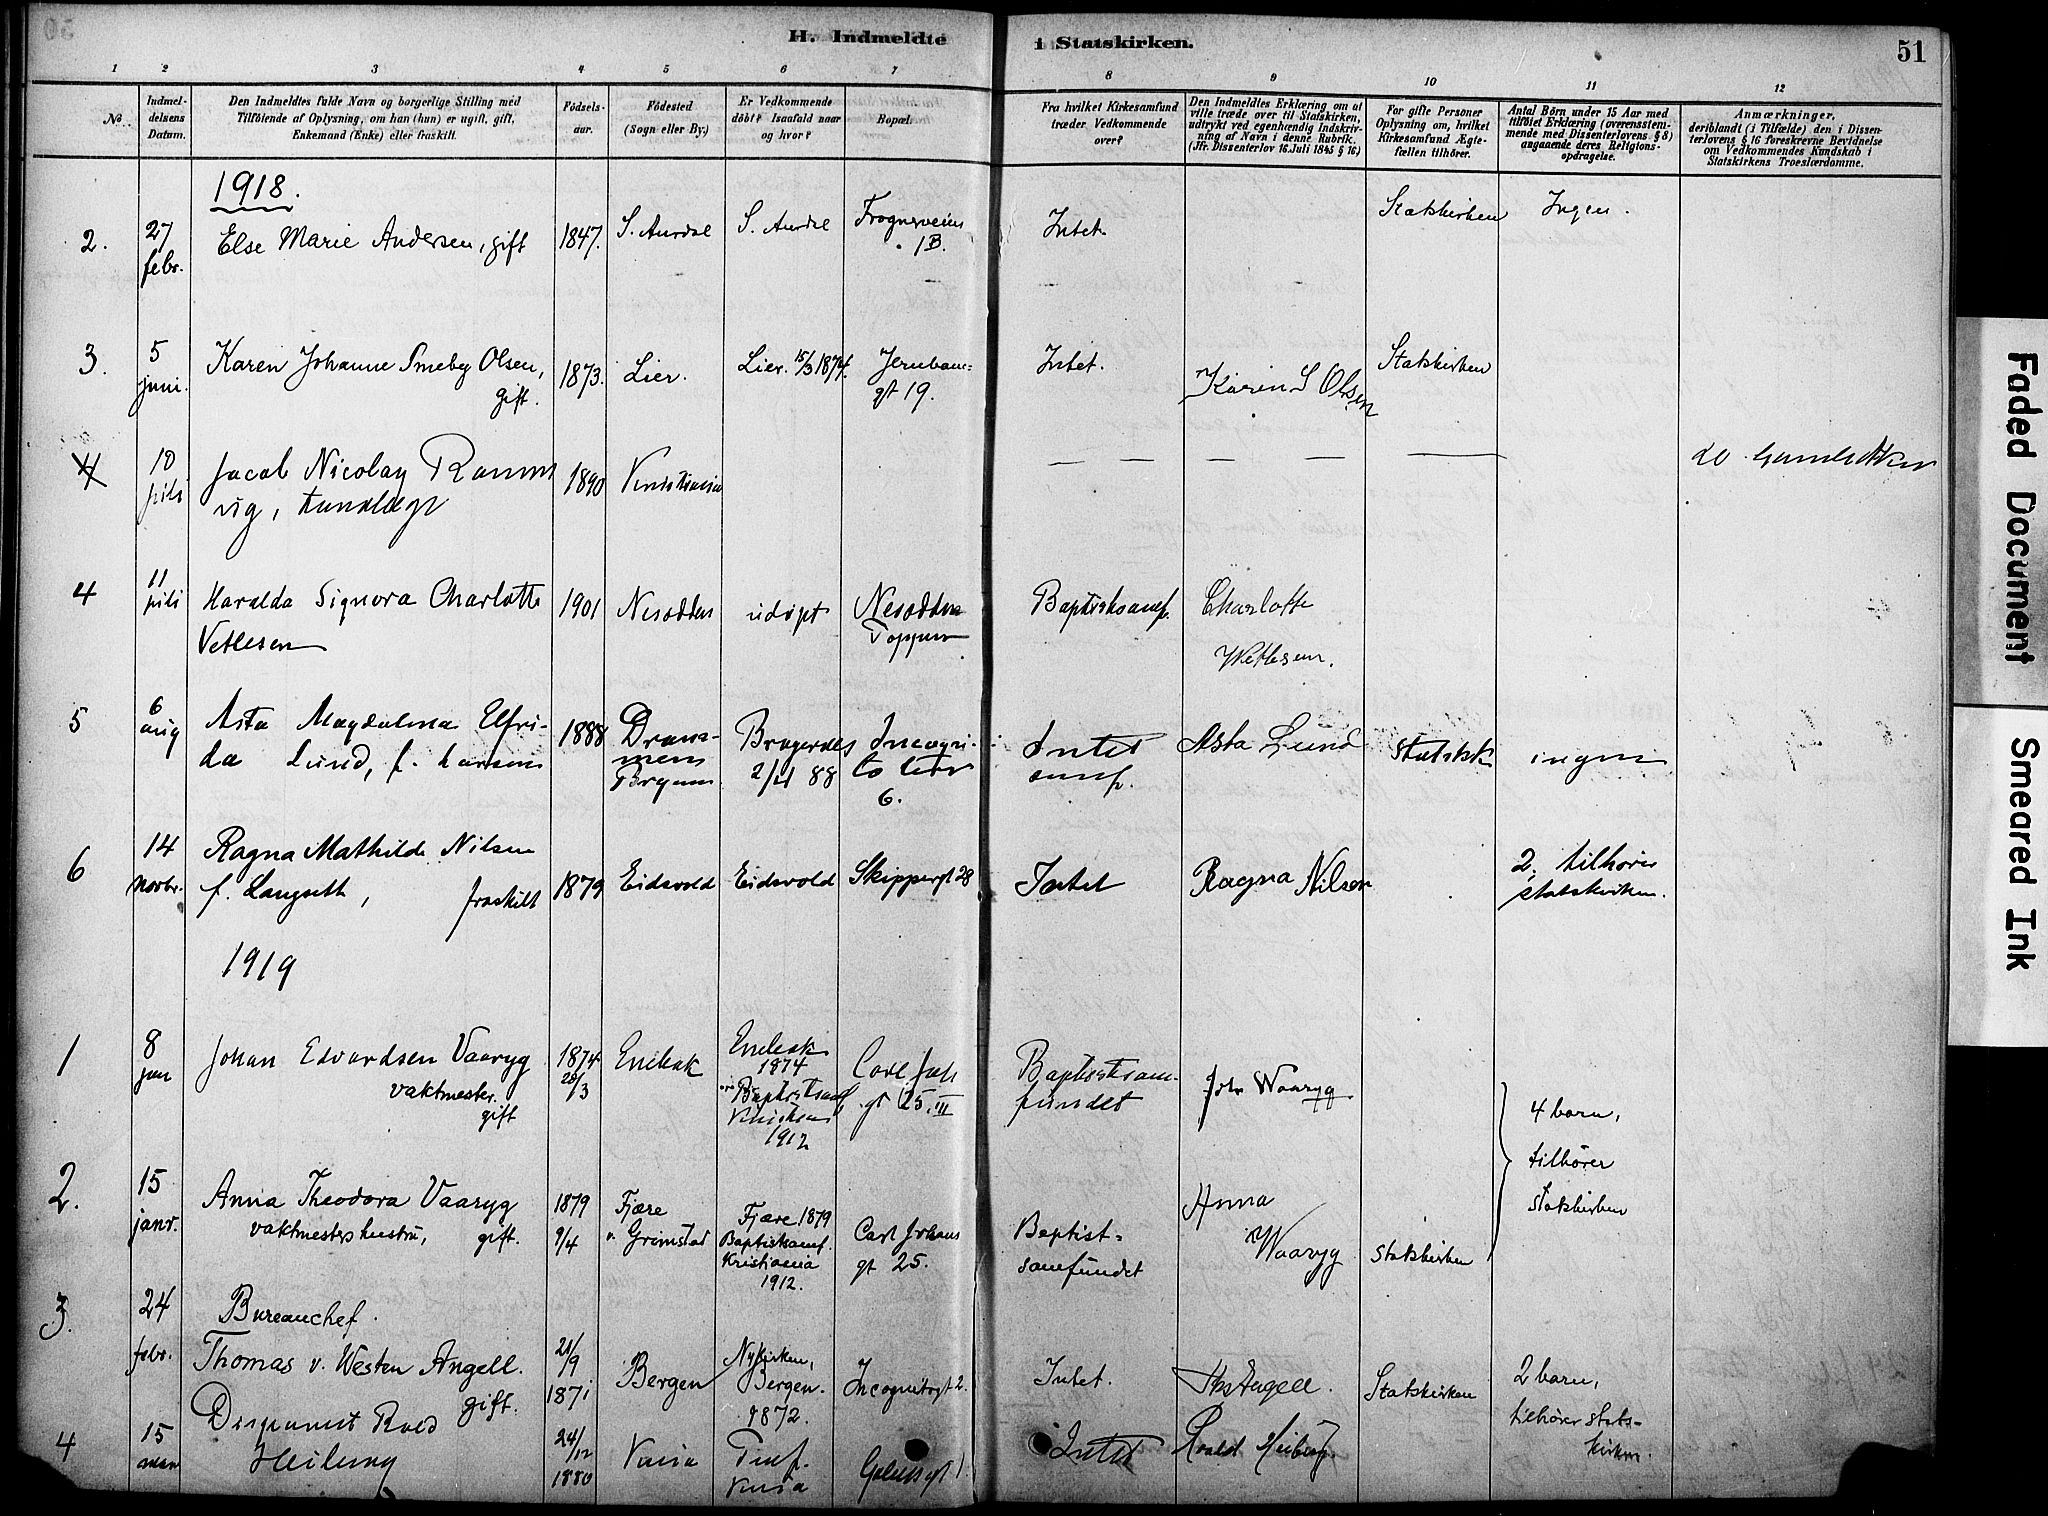 H. Indmeldte i Statskirken. 51
1 2 3 4 5 6 7 8 9 10 11 12
No
Indmel-
delsens
Datum.
Den Indmeldtes fulde Navn og borgerlige Stilling med
Tilföiende af Oplysning, om han (hun) er ugift, gift,
Enkemand (Enke) eller fraskilt.
Födsels-
aar.
Födested
(Sogn eller By.)
Er Vedkommende
döbt? Isaafald naar
og hvor?
Bopæl.
Fra hvilket Kirkesamfund
træder Vedkommende
over?
Den Indmeldtes Erklæring om at
ville træde over til Statskirken,
udtrykt ved egenhændig Indskriv-
ning af Navn i denne Rubrik.
(Jfr. Dissenterlov 16. Juli 1845 § 16)
For gifte Personer
Oplysning om, hvilket
Kirkesamfund Ægte-
fællen tilhörer.
Antal Börn under 15 Aar med
tilföiet Erklæring (overensstem-
mende med Dissenterlovens § 8)
angaaende deres Religions-
opdragelse.
Anmærkninger,
deriblandt (i Tilfælde) den i Dissen-
terlovens § 16 foreskrevne Bevidnelse
om Vedkommendes Kundskab i
Statskirkens Troeslærdomme.
1918.
2. 27 febr. Else Marie Andersen, gift 1847. S. Aurdal S. Aurdal Frognerveien 1B. Intet. Statskirken Ingen.
3. 5 juni. Karen Johanne Smeby Olsen, gift. 1873. Lier. Lier 15/3 1874. Jernbane-
gt 19. Intet. Karin S Olsen Statskirken
4 10 juli Jacob Nicolay Ramm
vig, tandlæge 1890 Kristiania — — — — —
4 11 juli Haralda Signora Charlotte
Vetlesen 1901 Nesodden udøpt Nesodden
Toppen Baptistsamf. Charlotte
Wetlesen.
5 6 aug Asta Magdalena Elfri-
da Lund, f. Larsen 1888 Dram-
men Bragernes
2/4 88 Incogni-
to terr
6. Intet
samf. Asta Lund Statsk ingen
6 14 novbr. Ragna Mathilde Nilsen
f. Langseth, fraskilt 1879 Eidsvold Eidsvold Skippergt 28 Intet Ragna Nilsen 2, tilhører
statskirken.
1919
1 8 jan Johan Edvardsen Vaaryg
vaktmester.
gift 1874
28/3 Enebak Enebak
1874
Baptistsamf
Kristiania
1912 Carl Joh
gt 25. III Baptistsam-
fundet Joh Waaryg 4 barn,
tilhører
statskirken
2. 15 janr. Anna Theodora Vaaryg
vaktmesters hustru, gift. 1879
9/4 Fjære
v. Grimstad Fjære 1879
Baptistsamf.
Kristiania
1912. Carl Johans
gt 25. Baptist-
samfundet Anna
Waaryg Statskirken
3. 24 febr. Bureauchef
Thomas v. Westen Angell.
gift. 21/9
1871 Bergen Nykirken,
Bergen.
1872. Incognitogt 2. Intet. Ths Angell. Statskirken 2 barn,
tilhører stats-
kirken.
4 15 mars Disponent Roald
Heiberg 24/12
1880 Kr.ia Kr.ia Intet Roald Heiberg
Faded Document
Smeared Ink